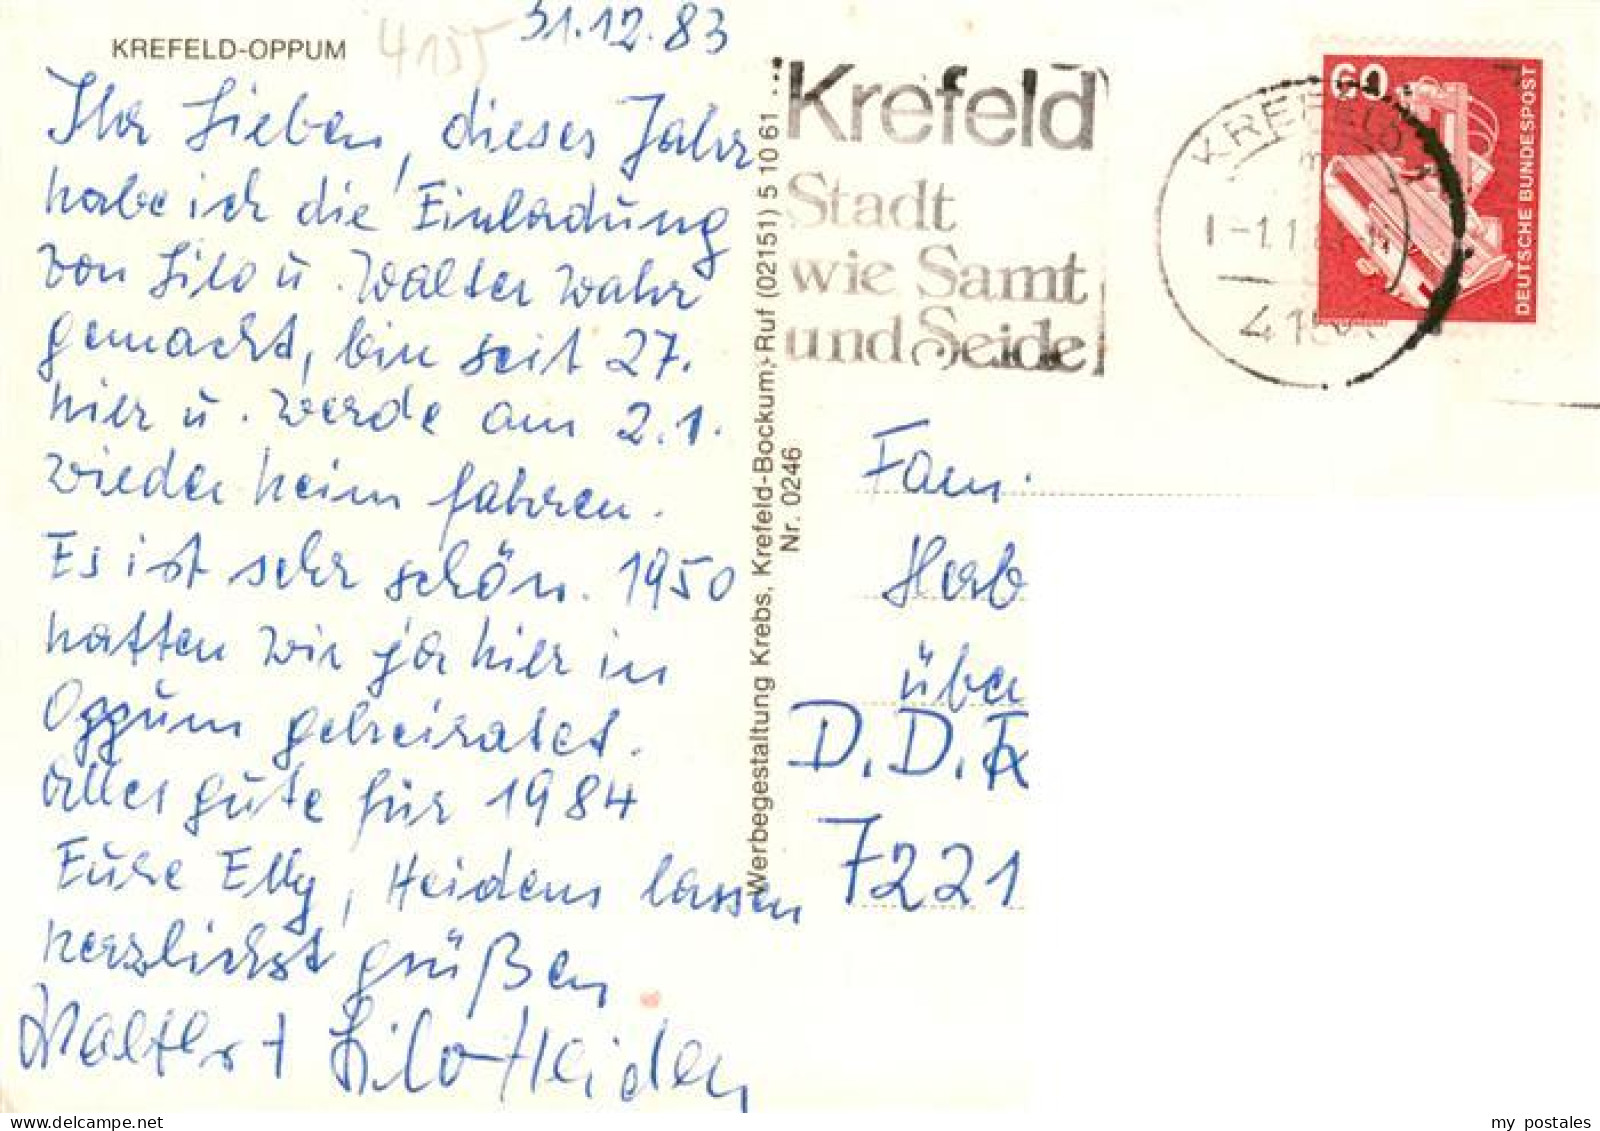 KREFELD-OPPUM
4155
31.12.83
Ihr Lieben, dieses Jahr
habe ich die Einladung
von Lilo u. Walter wahr
gemacht, bin seit 27.
hier u. werde am 2.1.
wieder heim fahren.
Es ist sehr schön. 1950
hatten wir ja hier in
Oppum geheiratet.
Alles gute für 1984
Eure Elly, Heidens lassen
herzlichst grüßen
Walter + Lilo Heiden
Werbegestaltung Krebs, Krefeld-Bockum, Ruf (02151) 5 10 61 ...
Nr. 0246
Krefeld
Stadt
wie Samt
und Seide
KREFELD 1
60
DEUTSCHE BUNDESPOST
Fam.
Herb
über
D.D.R
7221
my postales